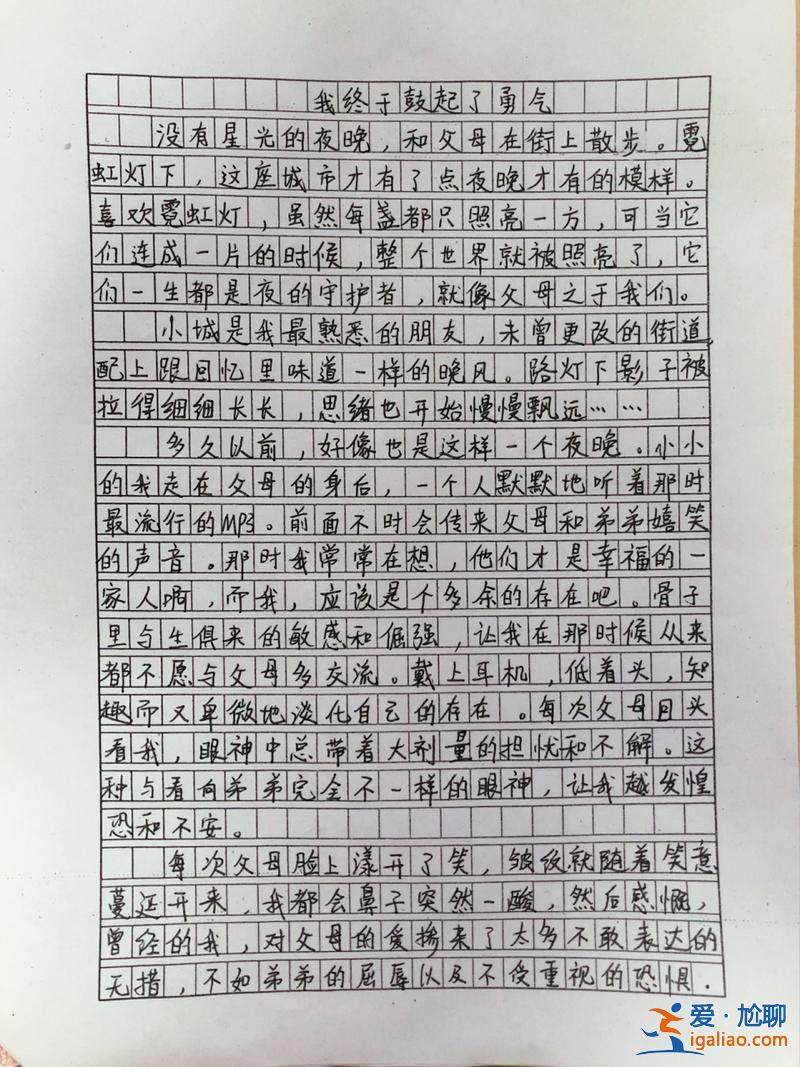 我终于鼓起了勇气
没有星光的夜晚，和父母在街上散步。霓
虹灯下，这座城市才有了点夜晚才有的模样。
喜欢霓虹灯，虽然每盏都只照亮一方，可当它
们连成一片的时候，整个世界就被照亮了，它
们一生都是夜的守护者，就像父母之于我们。
小城是我最熟悉的朋友，未曾更改的街道，
配上跟回忆里味道一样的晚风。路灯下影子被
拉得细细长长，思绪也开始慢慢飘远……
多久以前，好像也是这样一个夜晚。小小
的我走在父母的身后，一个人默默地听着那时
最流行的MP3。前面不时会传来父母和弟弟嬉笑
的声音。那时我常常在想，他们才是幸福的一
家人啊，而我，应该是个多余的存在吧。骨子
里与生俱来的敏感和倔强，让我在那时候从来
都不愿与父母多交流。戴上耳机，低着头，知
趣而又卑微地淡化自己的存在。每次父母回头
看我，眼神中总带着大剂量的担忧和不解。这
种与看向弟弟完全不一样的眼神，让我越发惶
恐和不安。
每次父母脸上漾开了笑，皱纹就随着笑意
蔓延开来，我都会鼻子突然一酸，然后感慨，
曾经的我，对父母的爱掺杂了太多不敢表达的
无措，不如弟弟的屈辱以及不受重视的恐惧．
爱·尬聊
igaliao.com